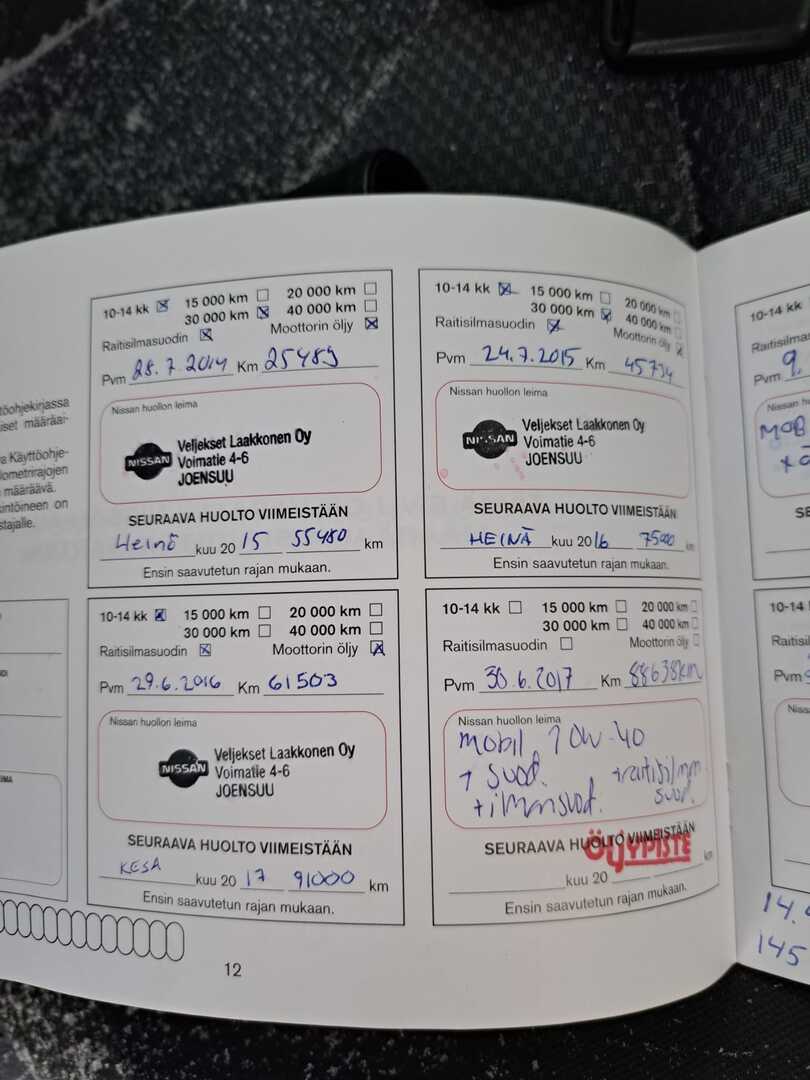 töohjekirjassa
iset määräai-
a Käyttöohje-
lometrirajojen
määräävä.
kintöineen on
stajalle.
10-14 kk 15 000 km 20 000 km
30 000 km 40 000 km
Raitisilmasuodin Moottorin öljy
Pvm 28.7.2014 Km 25489
Nissan huollon leima
NISSAN
Veljekset Laakkonen Oy
Voimatie 4-6
JOENSUU
SEURAAVA HUOLTO VIIMEISTÄÄN
Heinä kuu 20 15 55480 km
Ensin saavutetun rajan mukaan.
10-14 kk 15 000 km 20 000 km
30 000 km 40 000 km
Raitisilmasuodin Moottorin öljy
Pvm 24.7.2015 Km 45734
Nissan huollon leima
NISSAN
Veljekset Laakkonen Oy
Voimatie 4-6
JOENSUU
SEURAAVA HUOLTO VIIMEISTÄÄN
HEINÄ kuu 20 16 75000 km
Ensin saavutetun rajan mukaan.
10-14 kk 15 000 km 20 000 km
30 000 km 40 000 km
Raitisilmasuodin Moottorin öljy
Pvm 29.6.2016 Km 61503
Nissan huollon leima
NISSAN
Veljekset Laakkonen Oy
Voimatie 4-6
JOENSUU
SEURAAVA HUOLTO VIIMEISTÄÄN
KESÄ kuu 20 17 91000 km
Ensin saavutetun rajan mukaan.
10-14 kk 15 000 km 20 000 km
30 000 km 40 000 km
Raitisilmasuodin Moottorin öljy
Pvm 30.6.2017 Km 88638km
Nissan huollon leima
mobil 10W-40
+ suod.
+ilmansuod. +raitisilmm
suod.
SEURAAVA HUOLTO VIIMEISTÄÄN
ÖLJYPISTE
kuu 20 km
Ensin saavutetun rajan mukaan.
12
10-14 kk
Raitisilma
Pvm 9.
Nissan hu
MOB
SE
10-14
Raitisil
Pvm
Niss
14.
145